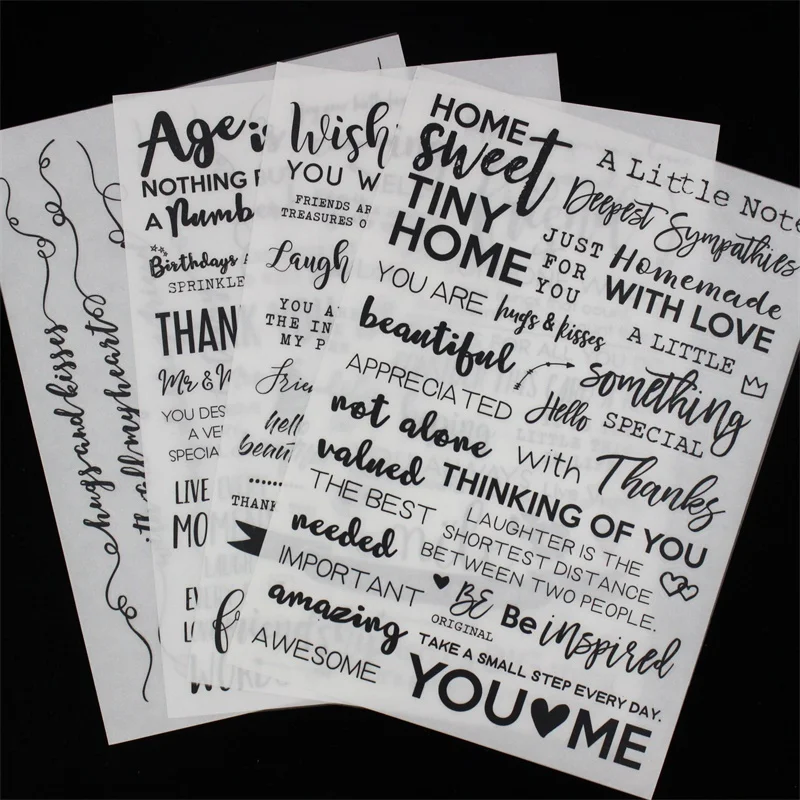 hugs and kisses
with all my heart
Age is
NOTHING
A Numb
Birthdays
SPRINKLE
THAN
Mr & M
YOU DES
A VE
SPECIAL
LIVE
MO
Wish
YOU W
FRIENDS AR
TREASURES O
Laugh
YOU A
THE IN
MY P
Frie
hell
beau
THANK
HOME
sweet
TINY
HOME
A Little Note
Deepest Sympathies
JUST
FOR
YOU
Homemade
WITH LOVE
YOU ARE
hugs & kisses
A LITTLE
beautiful
something
APPRECIATED
Hello
SPECIAL
not alone
with
Thanks
valued
THINKING OF YOU
THE BEST
LAUGHTER IS THE
SHORTEST DISTANCE
BETWEEN TWO PEOPLE.
needed
IMPORTANT
BE
ORIGINAL
Be inspired
amazing
TAKE A SMALL STEP EVERY DAY.
AWESOME
YOU ME